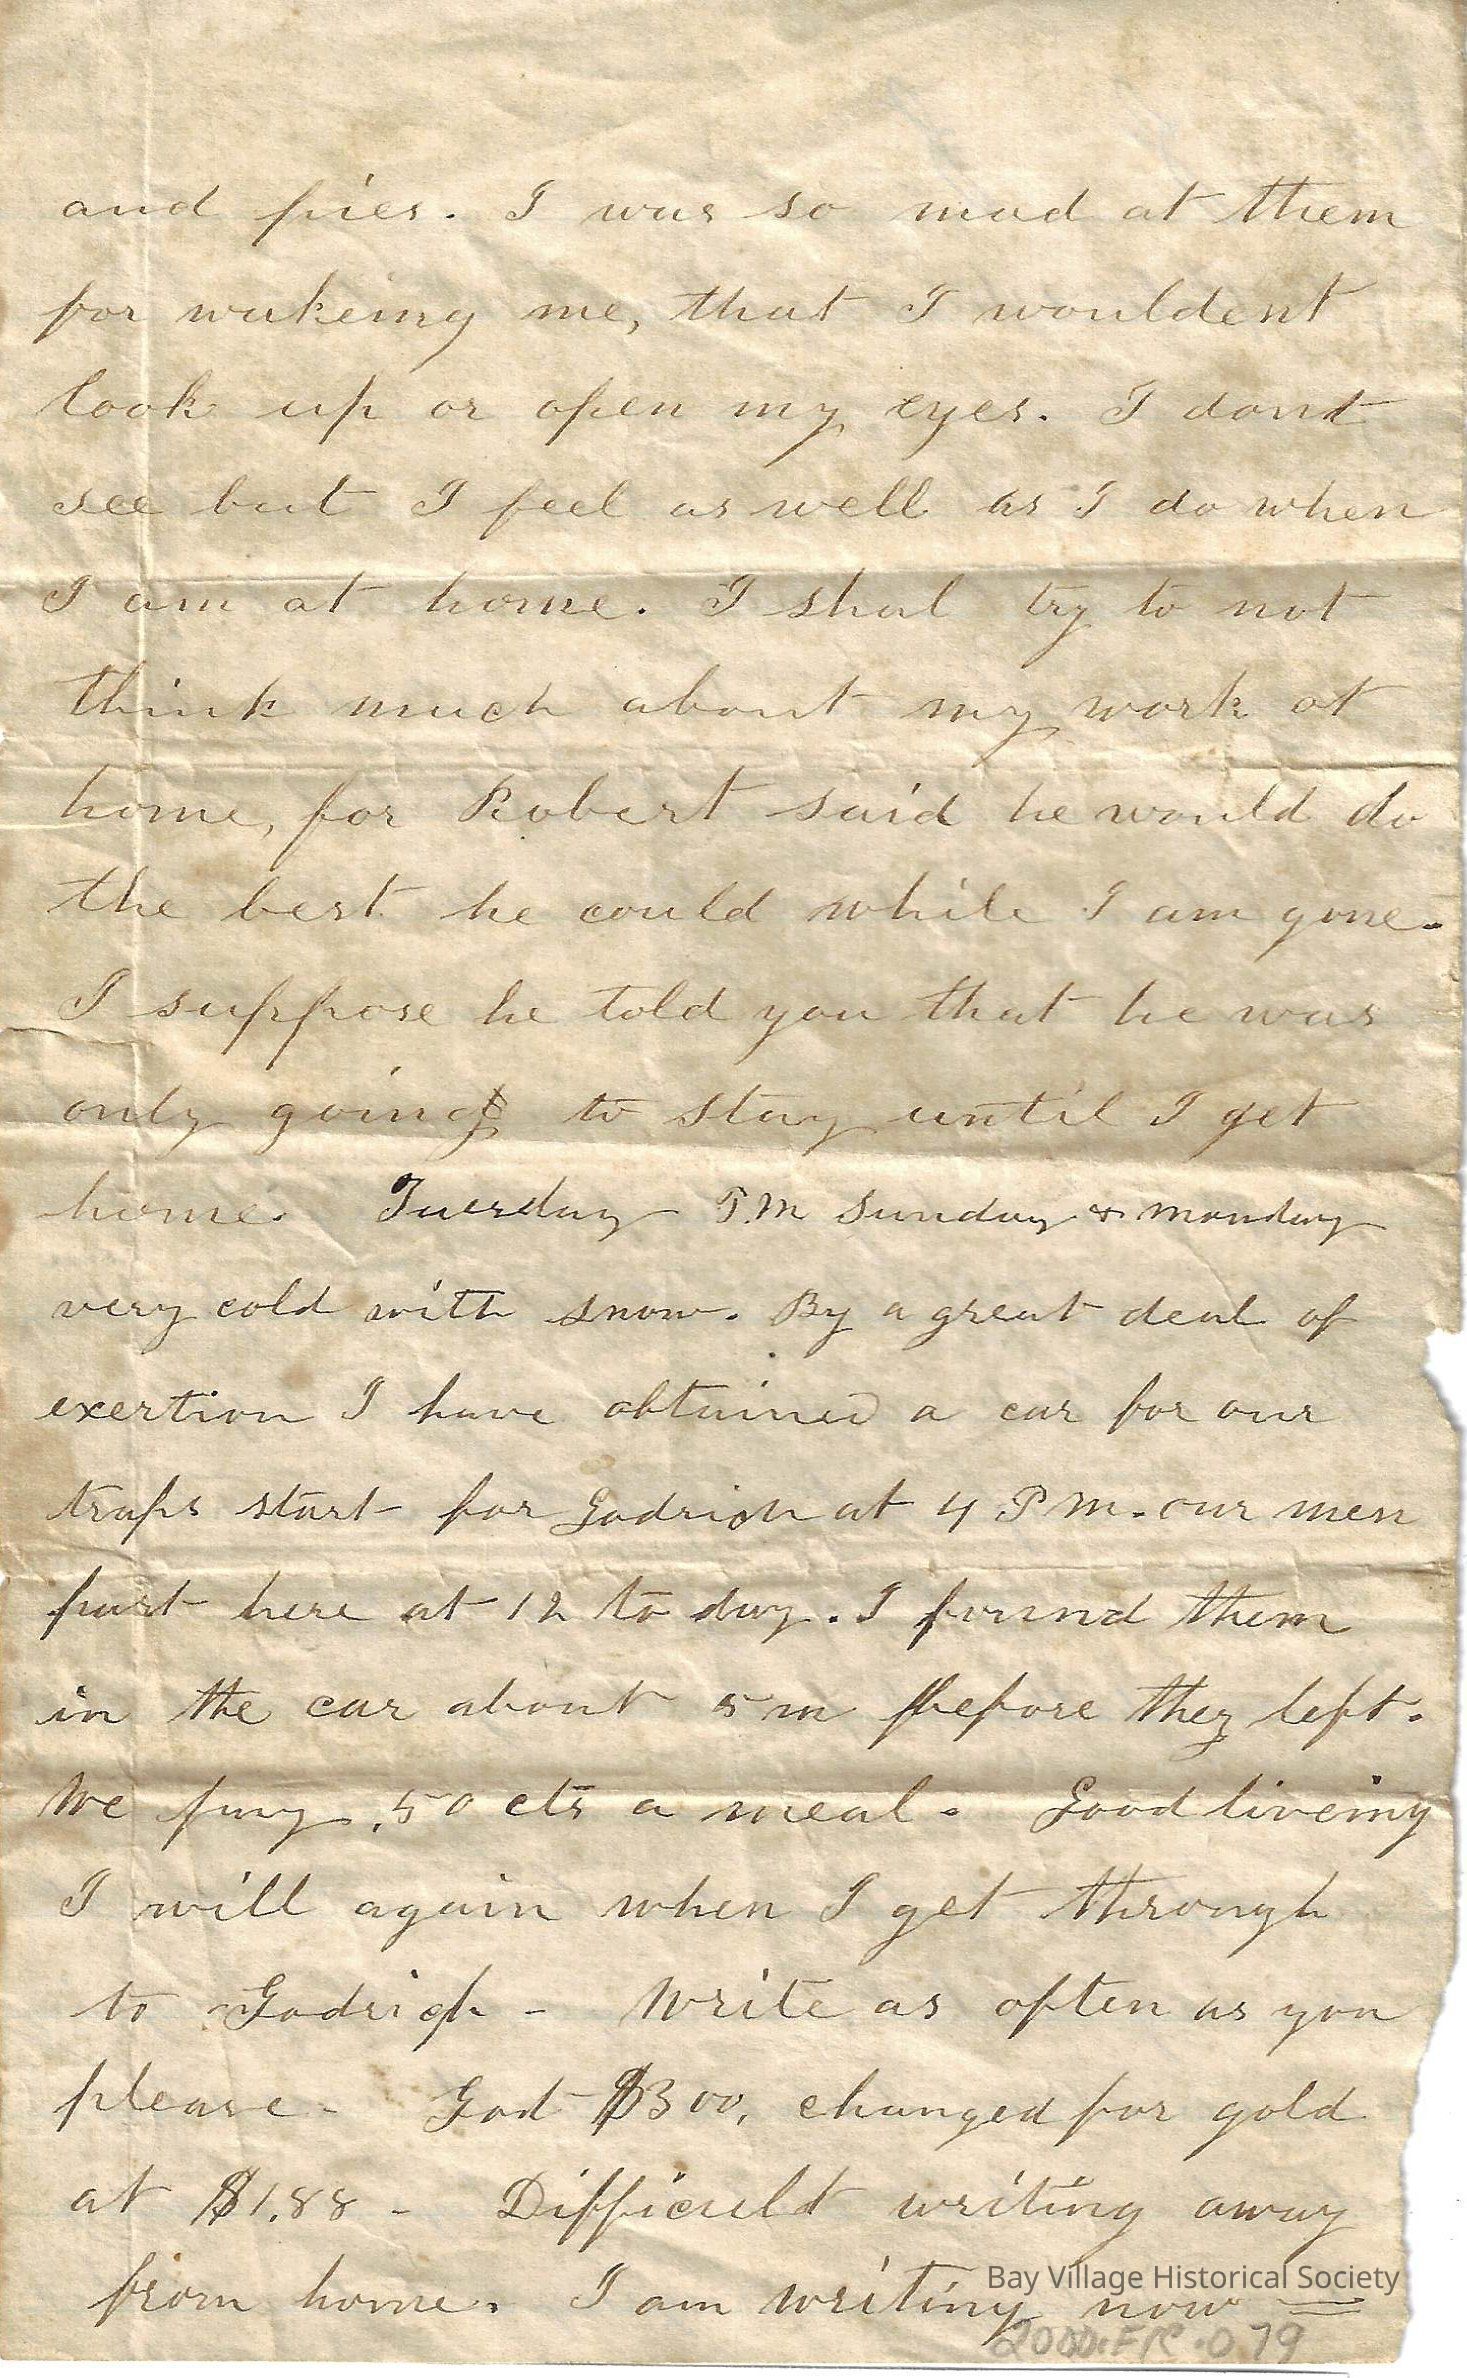 and pies. I was so mad at them
for wakeing me, that I wouldent
look up or open my eyes. I dont
see but I feel as well as I do when
I am at home. I shal try to not
think much about my work at
home, for Robert said he would do
the best he could while I am gone.
I suppose he told you that he was
only going to stay until I get
home. Tuesday P.M Sunday & monday
very cold with snow. By a great deal of
exertion I have obtained a car for our
traps start for Godrich at 4 P M. our men
past here at 12 to day. I found them
in the car about 5 m before they left.
We pay .50 cts a meal. Good liveing
I will again when I get through
to Godrich - Write as often as you
please - God $300, changed for gold
at $1.88 - Difficuldt writing away
from home. I am writing now
Bay Village Historical Society
2000.FIC.079